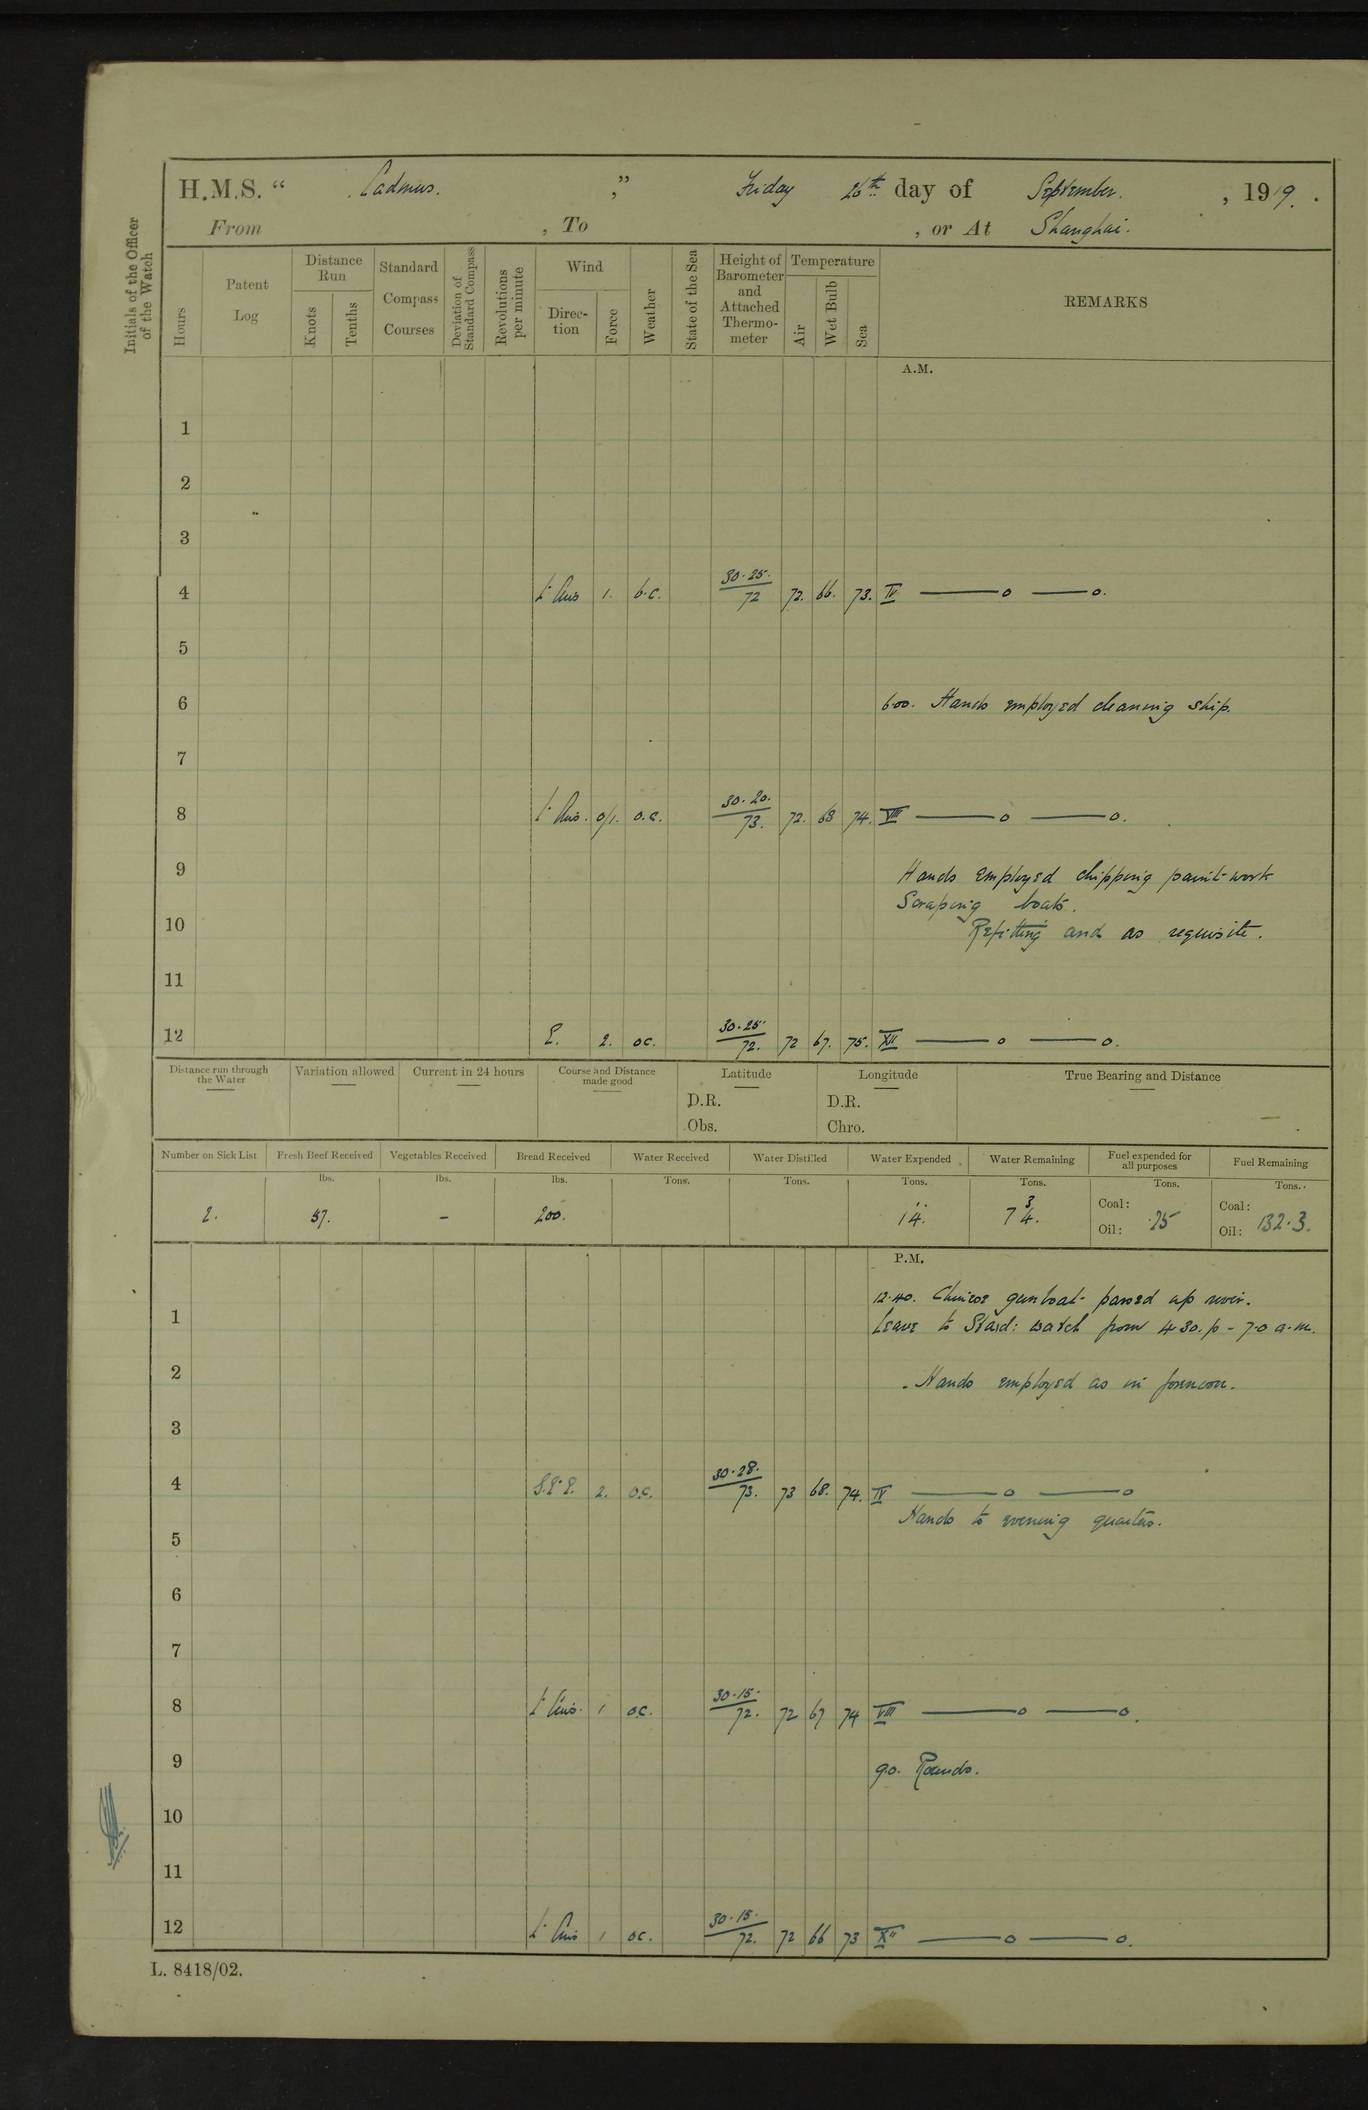 H.M.S. “ Cadmus. ,” Friday 26th day of September. , 1919. .
From , To , or At Shanghai.
Initials of the Officer of the Watch
Hours Patent Log Distance Run Knots Tenths Standard Compass Courses Deviation of Standard Compass Revolutions per minute Wind Direc-tion Force Weather State of the Sea Height of Barometer and Attached Thermo-meter Temperature Air Wet Bulb Sea REMARKS
A.M.
1
2
3
4 Lt Airs 1. b.c. 30.25. 72 72. 66. 73. IV —— o —— o.
5
6 6.00. Hands employed cleaning ship.
7
8 Lt Airs. 0/1. o.c. 30.20. 73. 72. 68 74. VIII —— o —— o.
9 Hands employed chipping paint-work
Scraping boats.
10 Refitting and as requisite.
11
12 E. 2. oc. 30.25. 72. 72 67. 75. XII —— o —— o.
Distance run through the Water Variation allowed Current in 24 hours Course and Distance made good Latitude Longitude True Bearing and Distance
D.R. D.R.
Obs. Chro.
Number on Sick List Fresh Beef Received Vegetables Received Bread Received Water Received Water Distilled Water Expended Water Remaining Fuel expended for all purposes Fuel Remaining
lbs. lbs. lbs. Tons. Tons. Tons. Tons. Tons. Tons.
2. 57. - 200. 14. 74. 3 Coal: Oil: .25 Coal: Oil: 132.3.
P.M.
12.40. Chinese gunboat passed up river.
1 Leave to Starbd: watch from 4.30. p - 7.0 a.m.
2 Hands employed as in forenoon.
3
4 S.E.E. 2. o.c. 30.28. 73. 73 68. 74. IV —— o —— o
Hands to evening quarters.
5
6
7
8 Lt Airs. 1 o.c. 30.15. 72. 72 67 74 VIII —— o —— o.
9 9.0. Rounds.
10
11
12 Lt Airs 1 oc. 30.15. 72. 72 66 73 XII —— o —— o.
L. 8418/02.